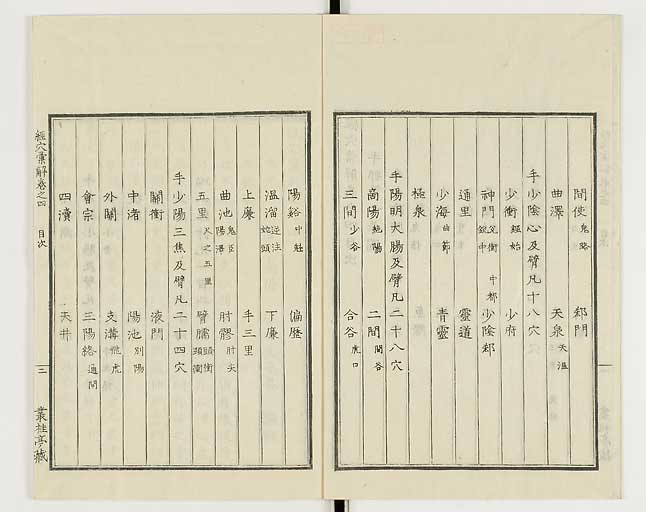 間使 鬼路 郄門
曲澤 天泉 天溫
手少陰心及臂凡十八穴
少衝 經始 少府
神門 兌衝 中都 銳中 少陰郄
通里 靈道
少海 曲節 青靈
極泉
手陽明大腸及臂凡二十八穴
商陽 絕陽 二間 間谷
三間 少谷 合谷 虎口
陽谿 中魁 偏歷
溫溜 逆注 蛇頭 下廉
上廉 手三里
曲池 鬼臣 陽澤 肘髎 肘尖
五里 尺之五里 臂臑 頭衝 頸衝
手少陽三焦及臂凡二十四穴
關衝 液門
中渚 陽池 別陽
外關 支溝 飛虎
會宗 三陽絡 通間
四瀆 天井
經穴彙解卷之四 目次 三 叢桂亭藏